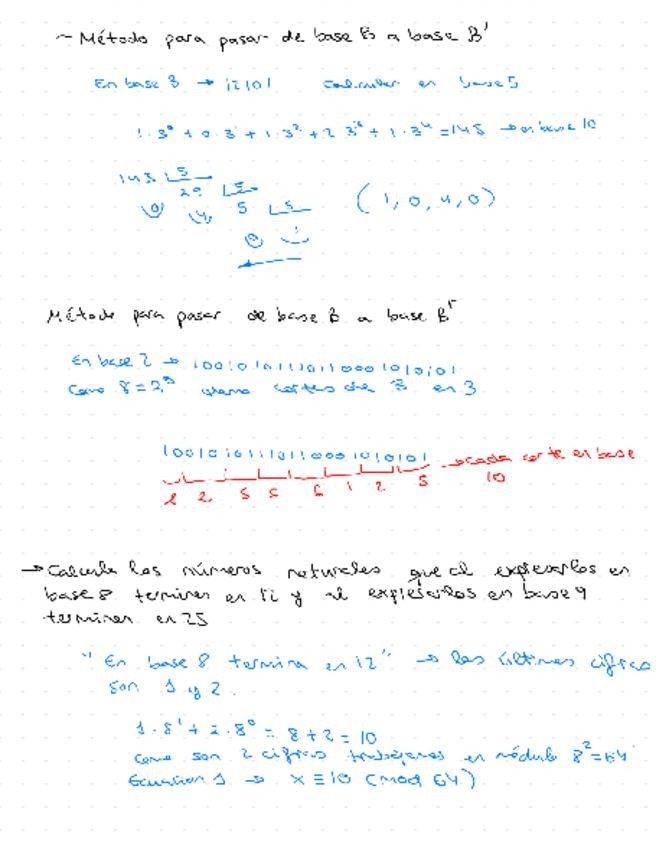 - Método para pasar de base B a base B'
En base 3 → 12101 Calcular en base 5
1·3⁰ + 0·3¹ + 1·3² + 2·3³ + 1·3⁴ = 145 → en base 10
145 5
29 5
0 4 5 5
0 1
(1, 0, 4, 0)
Método para pasar de base B a base Bʳ
En base 2 →
Como 8 = 2³ cortes de 3 en 3
→ cada corte en base
2 2 5 6 1 2 5 10
→ Calcula los números naturales que al expresarlos en
base 8 terminen en 12 y al expresarlos en base 9
terminen en 25
"En base 8 termina en 12" → las últimas cifras
son 1 y 2.
1·8¹ + 2·8⁰ = 8 + 2 = 10
Como son 2 cifras trabajamos en módulo 8² = 64
Ecuation 1 → x ≡ 10 (mod 64)